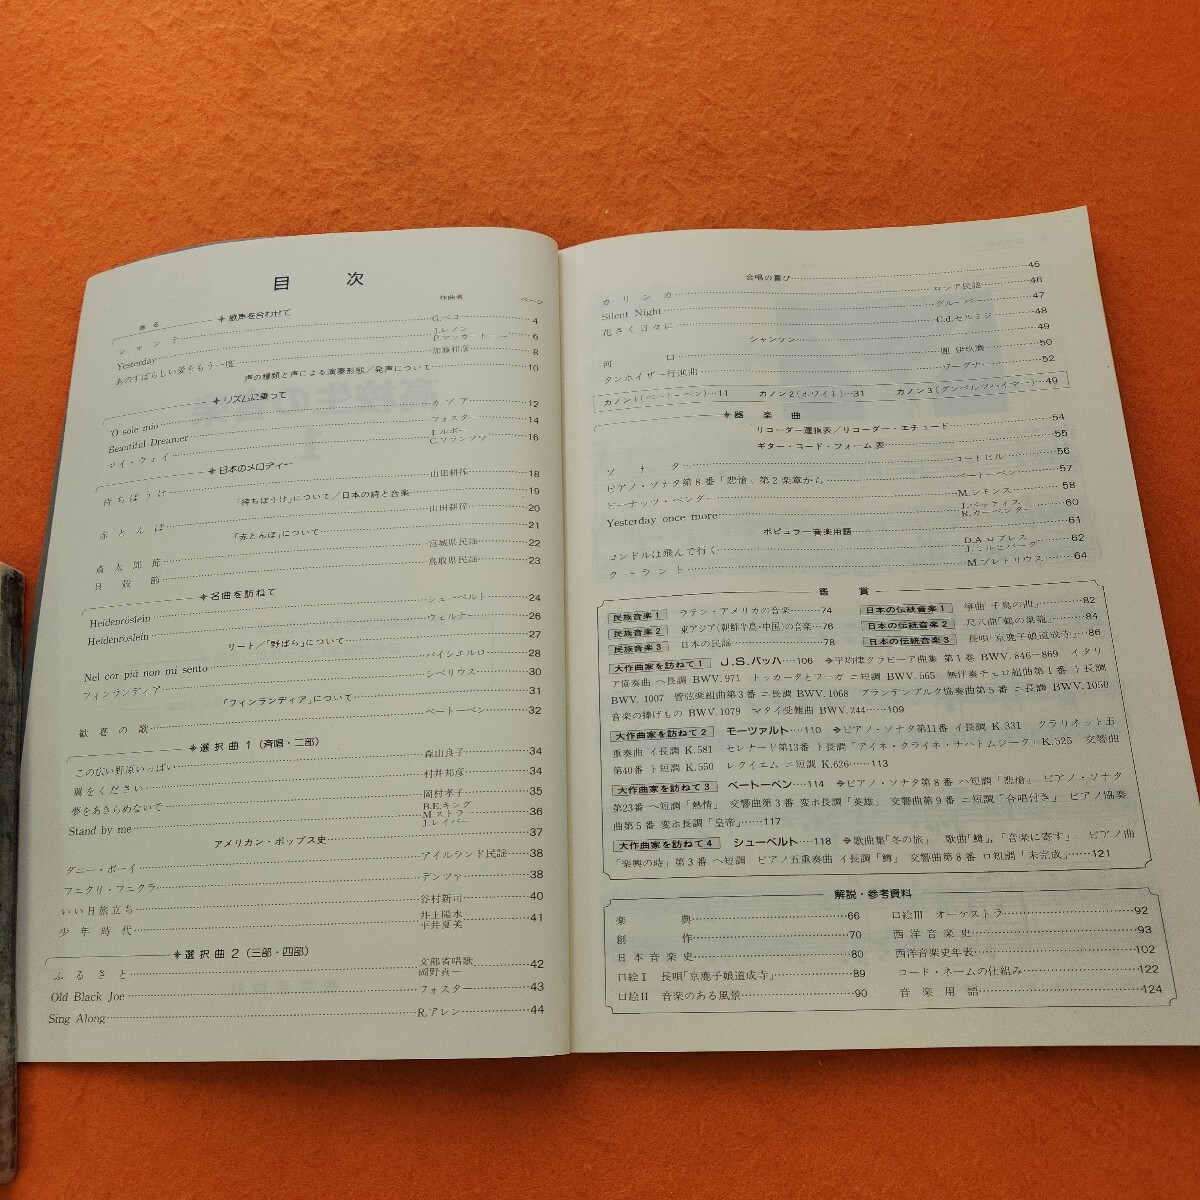 目 次
曲名 作曲者 ページ
✦歌声を合わせて
シャンテ G.ベコー 4
Yesterday J.レノン P.マッカートニー 6
あのすばらしい愛をもう一度 加藤和彦 8
声の種類と声による演奏形態／発声について 10
✦リズムに乗って
'O sole mio カプア 12
Beautiful Dreamer フォスター 14
マイ・ウェイ J.ルボー C.フランソワ 16
✦日本のメロディー
待ちぼうけ 山田耕筰 18
「待ちぼうけ」について／日本の詩と音楽 19
赤とんぼ 山田耕筰 20
「赤とんぼ」について 21
斎太郎節 宮城県民謡 22
貝殻節 鳥取県民謡 23
✦名曲を訪ねて
Heidenröslein シューベルト 24
Heidenröslein ウェルナー 26
リート／「野ばら」について 27
Nel cor più non mi sento パイシエルロ 28
フィンランディア シベリウス 30
「フィンランディア」について 31
歓喜の歌 ベートーベン 32
✦選択曲1（斉唱・二部）
この広い野原いっぱい 森山良子 34
翼をください 村井邦彦 34
夢をあきらめないで 岡村孝子 35
Stand by me B.E.キング M.ストラー J.レイバー 36
アメリカン・ポップス史 37
ダニー・ボーイ アイルランド民謡 38
フニクリ・フニクラ デンツァ 38
いい日旅立ち 谷村新司 40
少年時代 井上陽水 平井夏美 41
✦選択曲2（三部・四部）
ふるさと 文部省唱歌 岡野貞一 42
Old Black Joe フォスター 43
Sing Along R.アレン 44
合唱の喜び 45
カリンカ ロシア民謡 46
Silent Night グルーバー 47
花さく日々に C.d.セルミジ 48
シャンソン 49
河口 團 伊玖磨 50
タンホイザー行進曲 ワーグナー 52
カノン1（ベートーベン）…11 カノン2（ホワイト）…31 カノン3（グンペルツハイマー）…49
✦器楽曲
リコーダー運指表／リコーダー・エチュード 54
ギター・コード・フォーム表 55
ソナタ コートビル 56
ピアノ・ソナタ第8番「悲愴」第2楽章から ベートーベン 57
ドーナッツ・ベンダー M.シモンス 58
Yesterday once more J.ベッティス R.カーペンター 60
ポピュラー音楽用語 61
コンドルは飛んで行く D.A.ロブレス J.ミルヒバーグ 62
クーラント M.プレトリウス 64
鑑賞
民族音楽1 ラテン・アメリカの音楽 74 日本の伝統音楽1 箏曲「千鳥の曲」 82
民族音楽2 東アジア（朝鮮半島・中国）の音楽 76 日本の伝統音楽2 尺八曲「鶴の巣籠」 84
民族音楽3 日本の民謡 78 日本の伝統音楽3 長唄「京鹿子娘道成寺」 86
大作曲家を訪ねて1 J.S.バッハ…106 ✦平均律クラビーア曲集 第1巻 BWV.846～869 イタリ
ア協奏曲 ヘ長調 BWV.971 トッカータとフーガ ニ短調 BWV.565 無伴奏チェロ組曲第1番 ト長調
BWV.1007 管弦楽組曲第3番 ニ長調 BWV.1068 ブランデンブルク協奏曲第5番 ニ長調 BWV.1050
音楽の捧げもの BWV.1079 マタイ受難曲 BWV.244……109
大作曲家を訪ねて2 モーツァルト…110 ✦ピアノ・ソナタ第11番 イ長調 K.331 クラリネット五
重奏曲 イ長調 K.581 セレナード第13番 ト長調「アイネ・クライネ・ナハトムジーク」K.525 交響曲
第40番 ト短調 K.550 レクイエム ニ短調 K.626……113
大作曲家を訪ねて3 ベートーベン…114 ✦ピアノ・ソナタ第8番 ハ短調「悲愴」 ピアノ・ソナタ
第23番 ヘ短調「熱情」 交響曲第3番 変ホ長調「英雄」 交響曲第9番 ニ短調「合唱付き」 ピアノ協奏
曲第5番 変ホ長調「皇帝」……117
大作曲家を訪ねて4 シューベルト…118 ✦歌曲集「冬の旅」 歌曲「鱒」,「音楽に寄す」 ピアノ曲
「楽興の時」第3番 ヘ短調 ピアノ五重奏曲 イ長調「鱒」 交響曲第8番 ロ短調「未完成」……121
解説・参考資料
楽典 66 口絵Ⅲ オーケストラ 92
創作 70 西洋音楽史 93
日本音楽史 80 西洋音楽史年表 102
口絵Ⅰ 長唄「京鹿子娘道成寺」 89 コード・ネームの仕組み 122
口絵Ⅱ 音楽のある風景 90 音楽用語 124